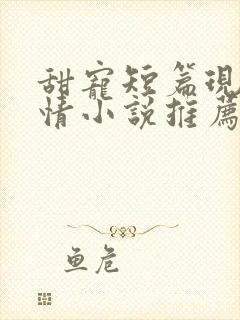 甜寵短篇現
情小說推薦
鱼危